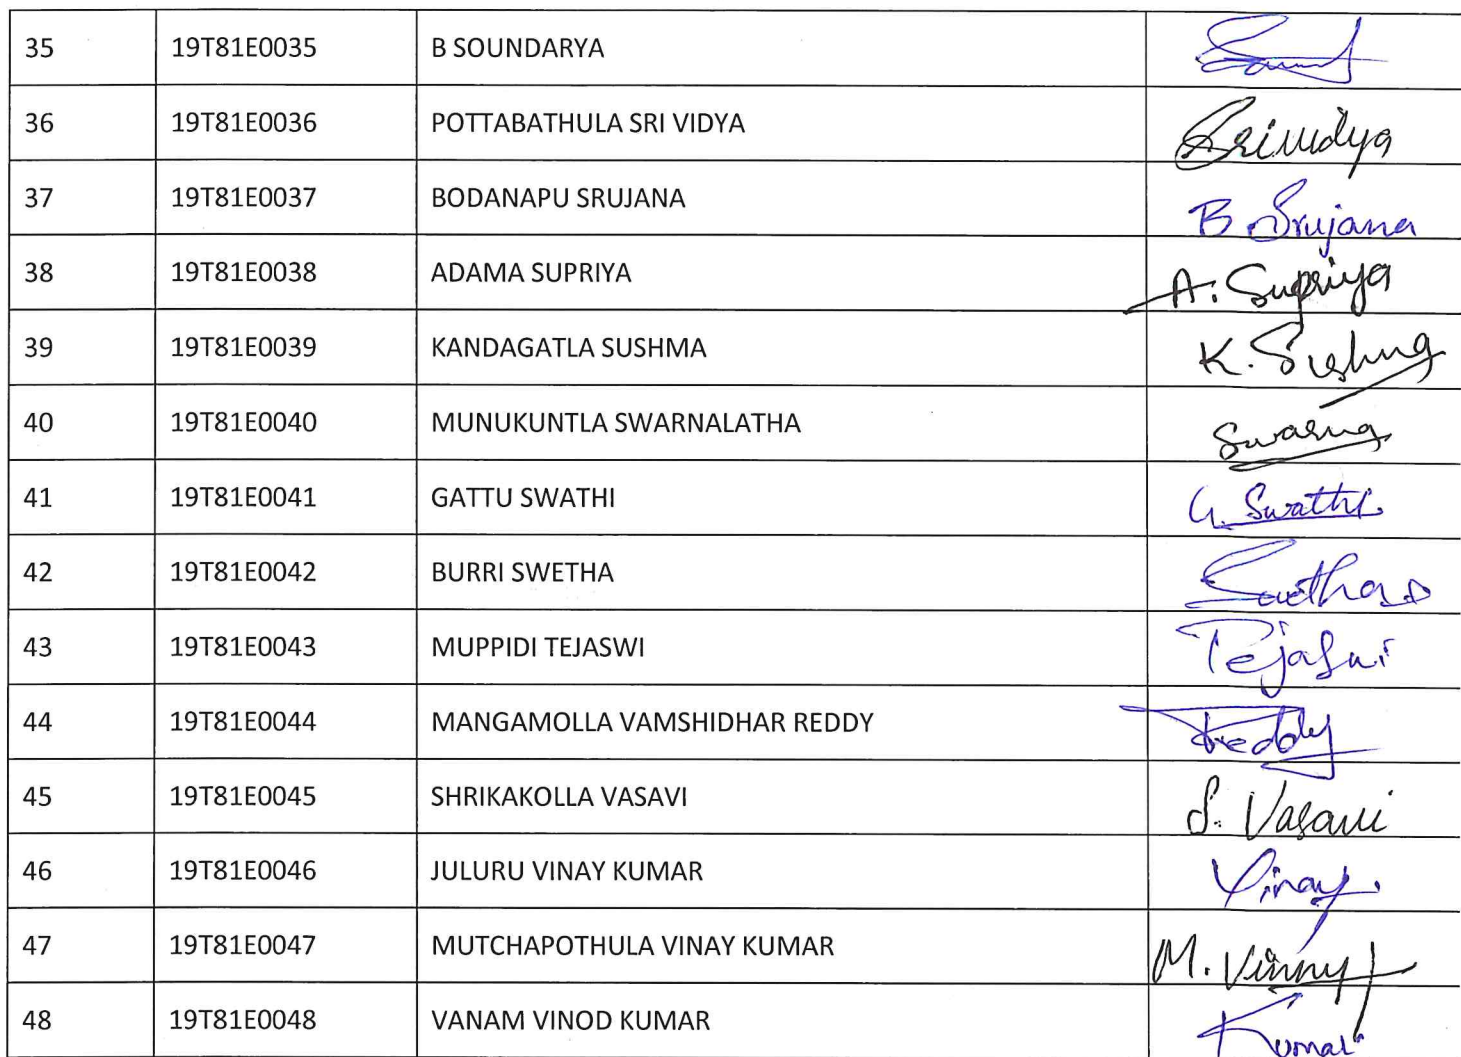 35 19T81E0035 B SOUNDARYA
36 19T81E0036 POTTABATHULA SRI VIDYA Srividya
37 19T81E0037 BODANAPU SRUJANA B Srujana
38 19T81E0038 ADAMA SUPRIYA A. Supriya
39 19T81E0039 KANDAGATLA SUSHMA K. Sushma
40 19T81E0040 MUNUKUNTLA SWARNALATHA Swarna
41 19T81E0041 GATTU SWATHI G. Swathi.
42 19T81E0042 BURRI SWETHA Swetha
43 19T81E0043 MUPPIDI TEJASWI Tejaswi
44 19T81E0044 MANGAMOLLA VAMSHIDHAR REDDY Reddy
45 19T81E0045 SHRIKAKOLLA VASAVI S. Vasavi
46 19T81E0046 JULURU VINAY KUMAR Vinay.
47 19T81E0047 MUTCHAPOTHULA VINAY KUMAR M. Vinny
48 19T81E0048 VANAM VINOD KUMAR Kumar